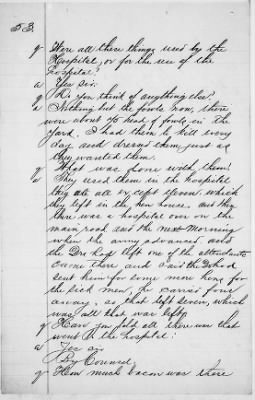 53.
q Were all these things used by the
Hospital, or for the use of the
Hospital?
a Yes sir.
q Do you think of anything else?
a Nothing but the fowls now, there
were about 70 head of fowls in the
yard. I had them to kill every
day and dressed them just as
they wanted them.
q What was done with them?
a They used them in the hospital
they ate all up, cept eleven which
they left in the hen house. and they
there was a hospital over on the
main road and the next morning
when the army advanced and
the Drs had left one of the attendants
came there and said the
sent him for some more hens for
the sick men, he carried four
away, so that left seven, which
was all that was left,
q Have you told all there was that
went to the hospital?
a Yes sir
By Counsel
q How much bacon was there